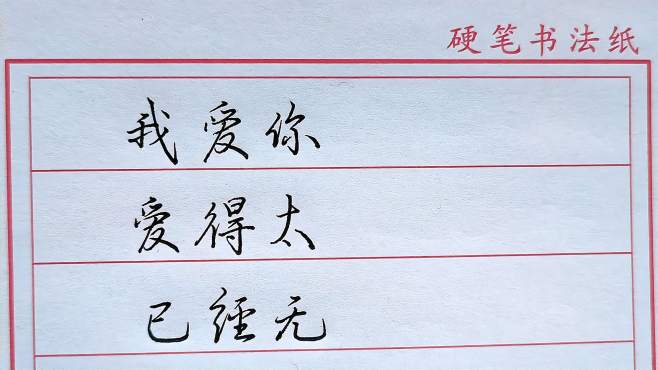 硬笔书法纸
我爱你
爱得太
已经无